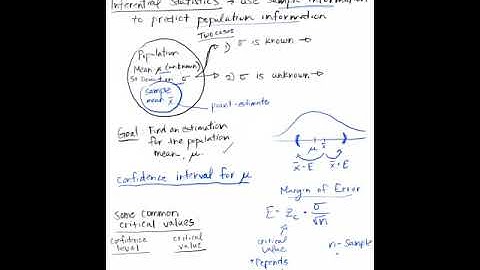 Inferential Statistics → use sample information
to predict population information
Two cases
1) σ is known →
Population
Mean μ (unknown)
St Deviation σ
2) σ is unknown →
sample
mean x̄
point-estimate
Goal Find an estimation
for the population
mean, μ.
μ x̄
x̄-E x̄+E
confidence interval for μ
Margin of Error
E = Z_c · σ/√n
Some Common
critical values
confidence level
critical value
critical
value
n - Sample
* Depends